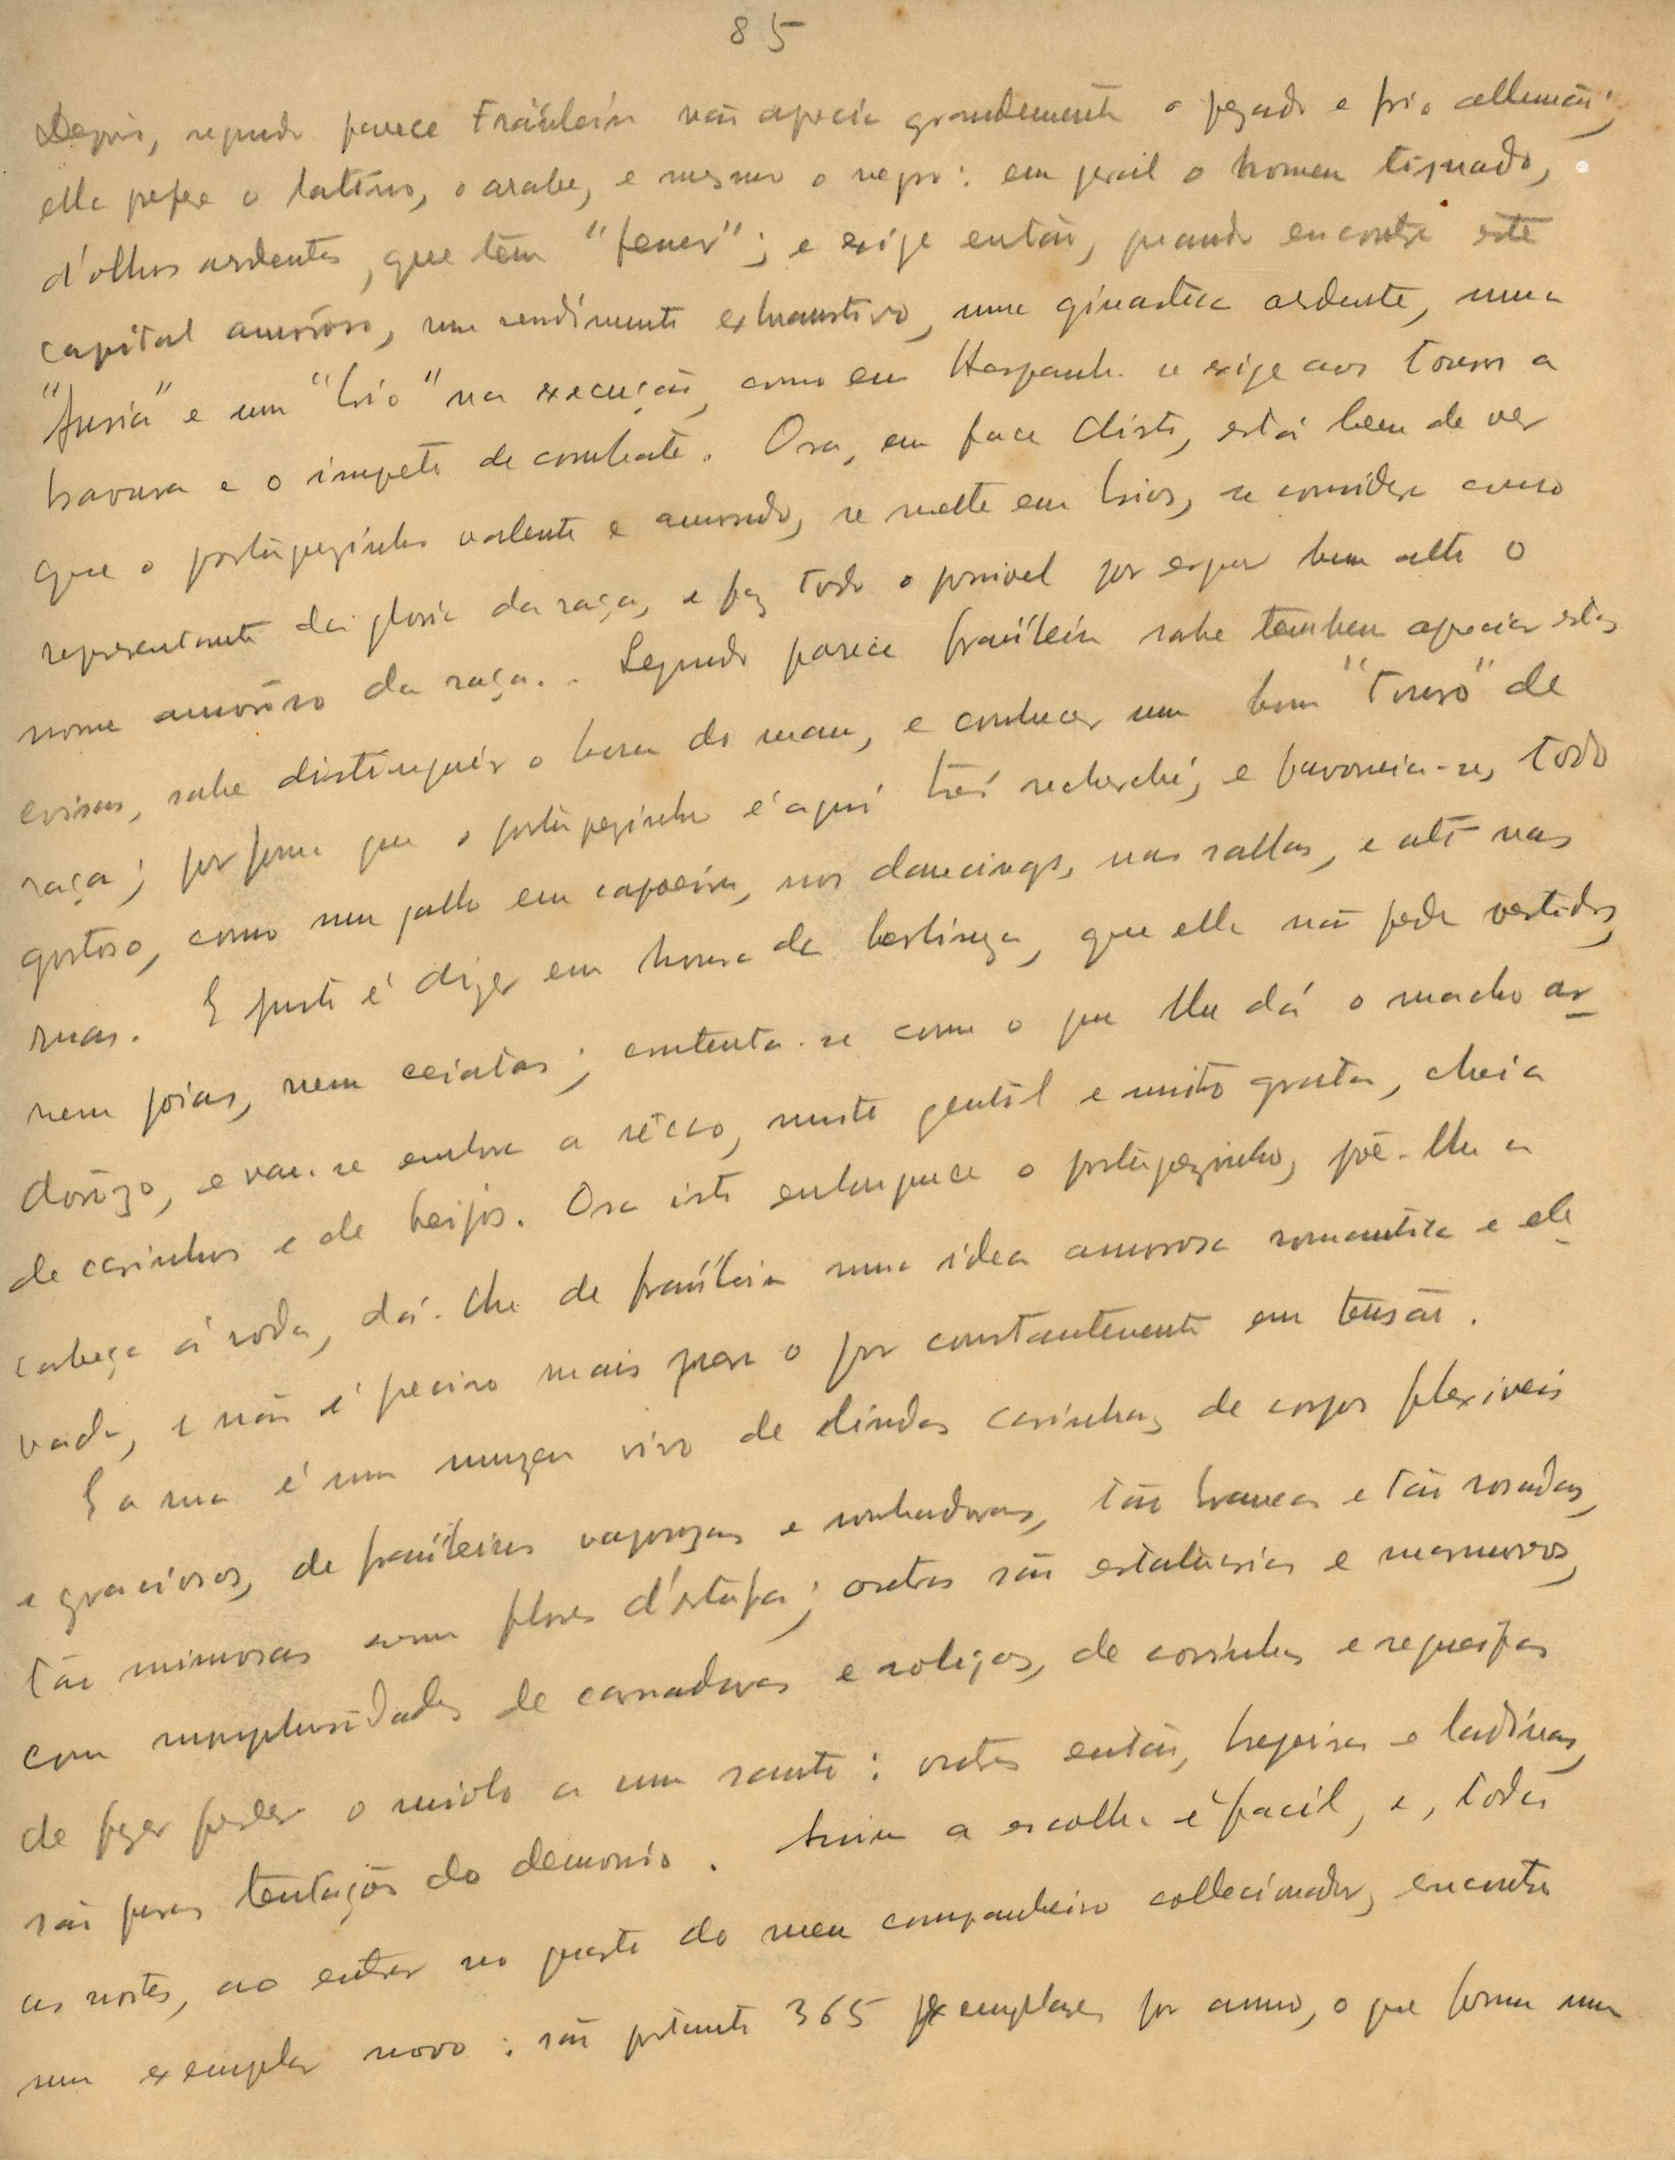 85
Depois, segundo parece Fräulein não aprecia grandemente o pezado e frio allemão;
ella prefere o latino, o arabe, e mesmo o negro: em geral o homem tisnado,
d'olhos ardentes, que tem "feuer"; e exige então, quando encontra este
capital amorôso, um rendimento exhaustivo, uma ginastica ardente, uma
"furia" e um "brio" na execução, como em Hespanha se exige aos touros a
bravura e o impeto de combate. Ora, em face disto, está bem de ver
que o portuguezinho valente e amorudo, se mette em brios, se considera como
representante da gloria da raça, e faz todo o possivel por erguer bem alto o
nome amorôso da raça.. Segundo parece fraülein sabe tambem apreciar estas
coisas, sabe distinguir o bom do mau, e conhecer um bom "touro" de
raça; por forma que o portuguezinho é aqui très recherché, e pavoneia-se, todo
gostoso, como um gallo em capoeira, nos dancings, nas sallas, e até nas
ruas. E justo é dizer em honra da berlineza, que ella não pede vestidos,
nem joias, nem ceiatas; contenta-se com o que lhe dá o macho ar-
dorôzo, e vai-se embora a sêcco, muito gentil e muito grata, cheia
de carinhos e de beijos. Ora isto enlouquece o portuguezinho, põe-lhe a
cabeça á roda, dá-lhe de fraülein uma idea amorosa romantica e ele-
vada, e não é preciso mais para o por constantemente em tensão.
E a rua é um muzeu vivo de lindas carinhas, de corpos flexiveis
e graciosos, de fraüleins vaporozas e sonhadoras, tão brancas e tão rosadas,
tão mimosas como flores d'estufa; outras são estatuarias e marmoreas,
com sumptuosidades de carnaduras e roliças, de coxinhas e regueifas
de fazer perder o miolo a um santo: outras então, brejeiras e ladinas,
são puras tentações do demonio. Assim a escolha é facil, e, todas
as noites, ao entrar no quarto do meu companheiro colleccionador, encontro
um exemplar novo: são portanto 365 exemplares por anno, o que forma uma